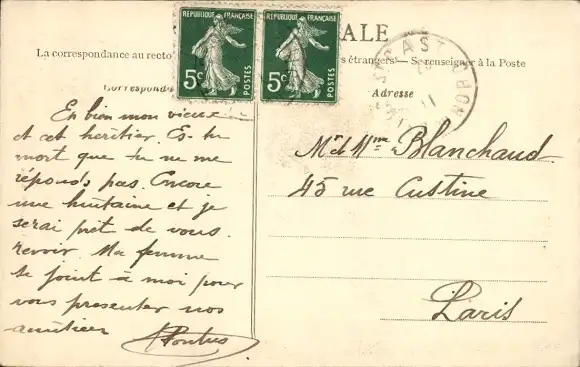 RÉPUBLIQUE FRANÇAISE
5c POSTES
RÉPUBLIQUE FRANÇAISE
5c POSTES
ALE
La correspondance au recto
s étrangers — Se renseigner à la Poste
Correspond
Adresse
11
Eh bien mon vieux
et cet héritier. Es-tu
mort que tu ne me
réponds pas. Encore
une huitaine et je
serai prêt de vous
revoir. Ma femme
se joint à moi pour
vous presenter nos
amitiés
Mr & Mme Blanchaud
45 rue Custine
Paris